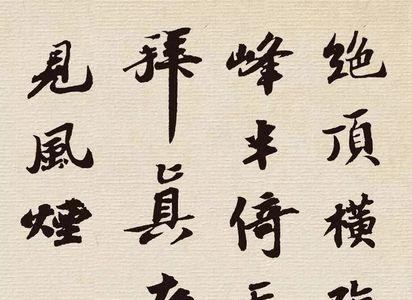 絶頂橫
峰半倚
拜眞
見風煙